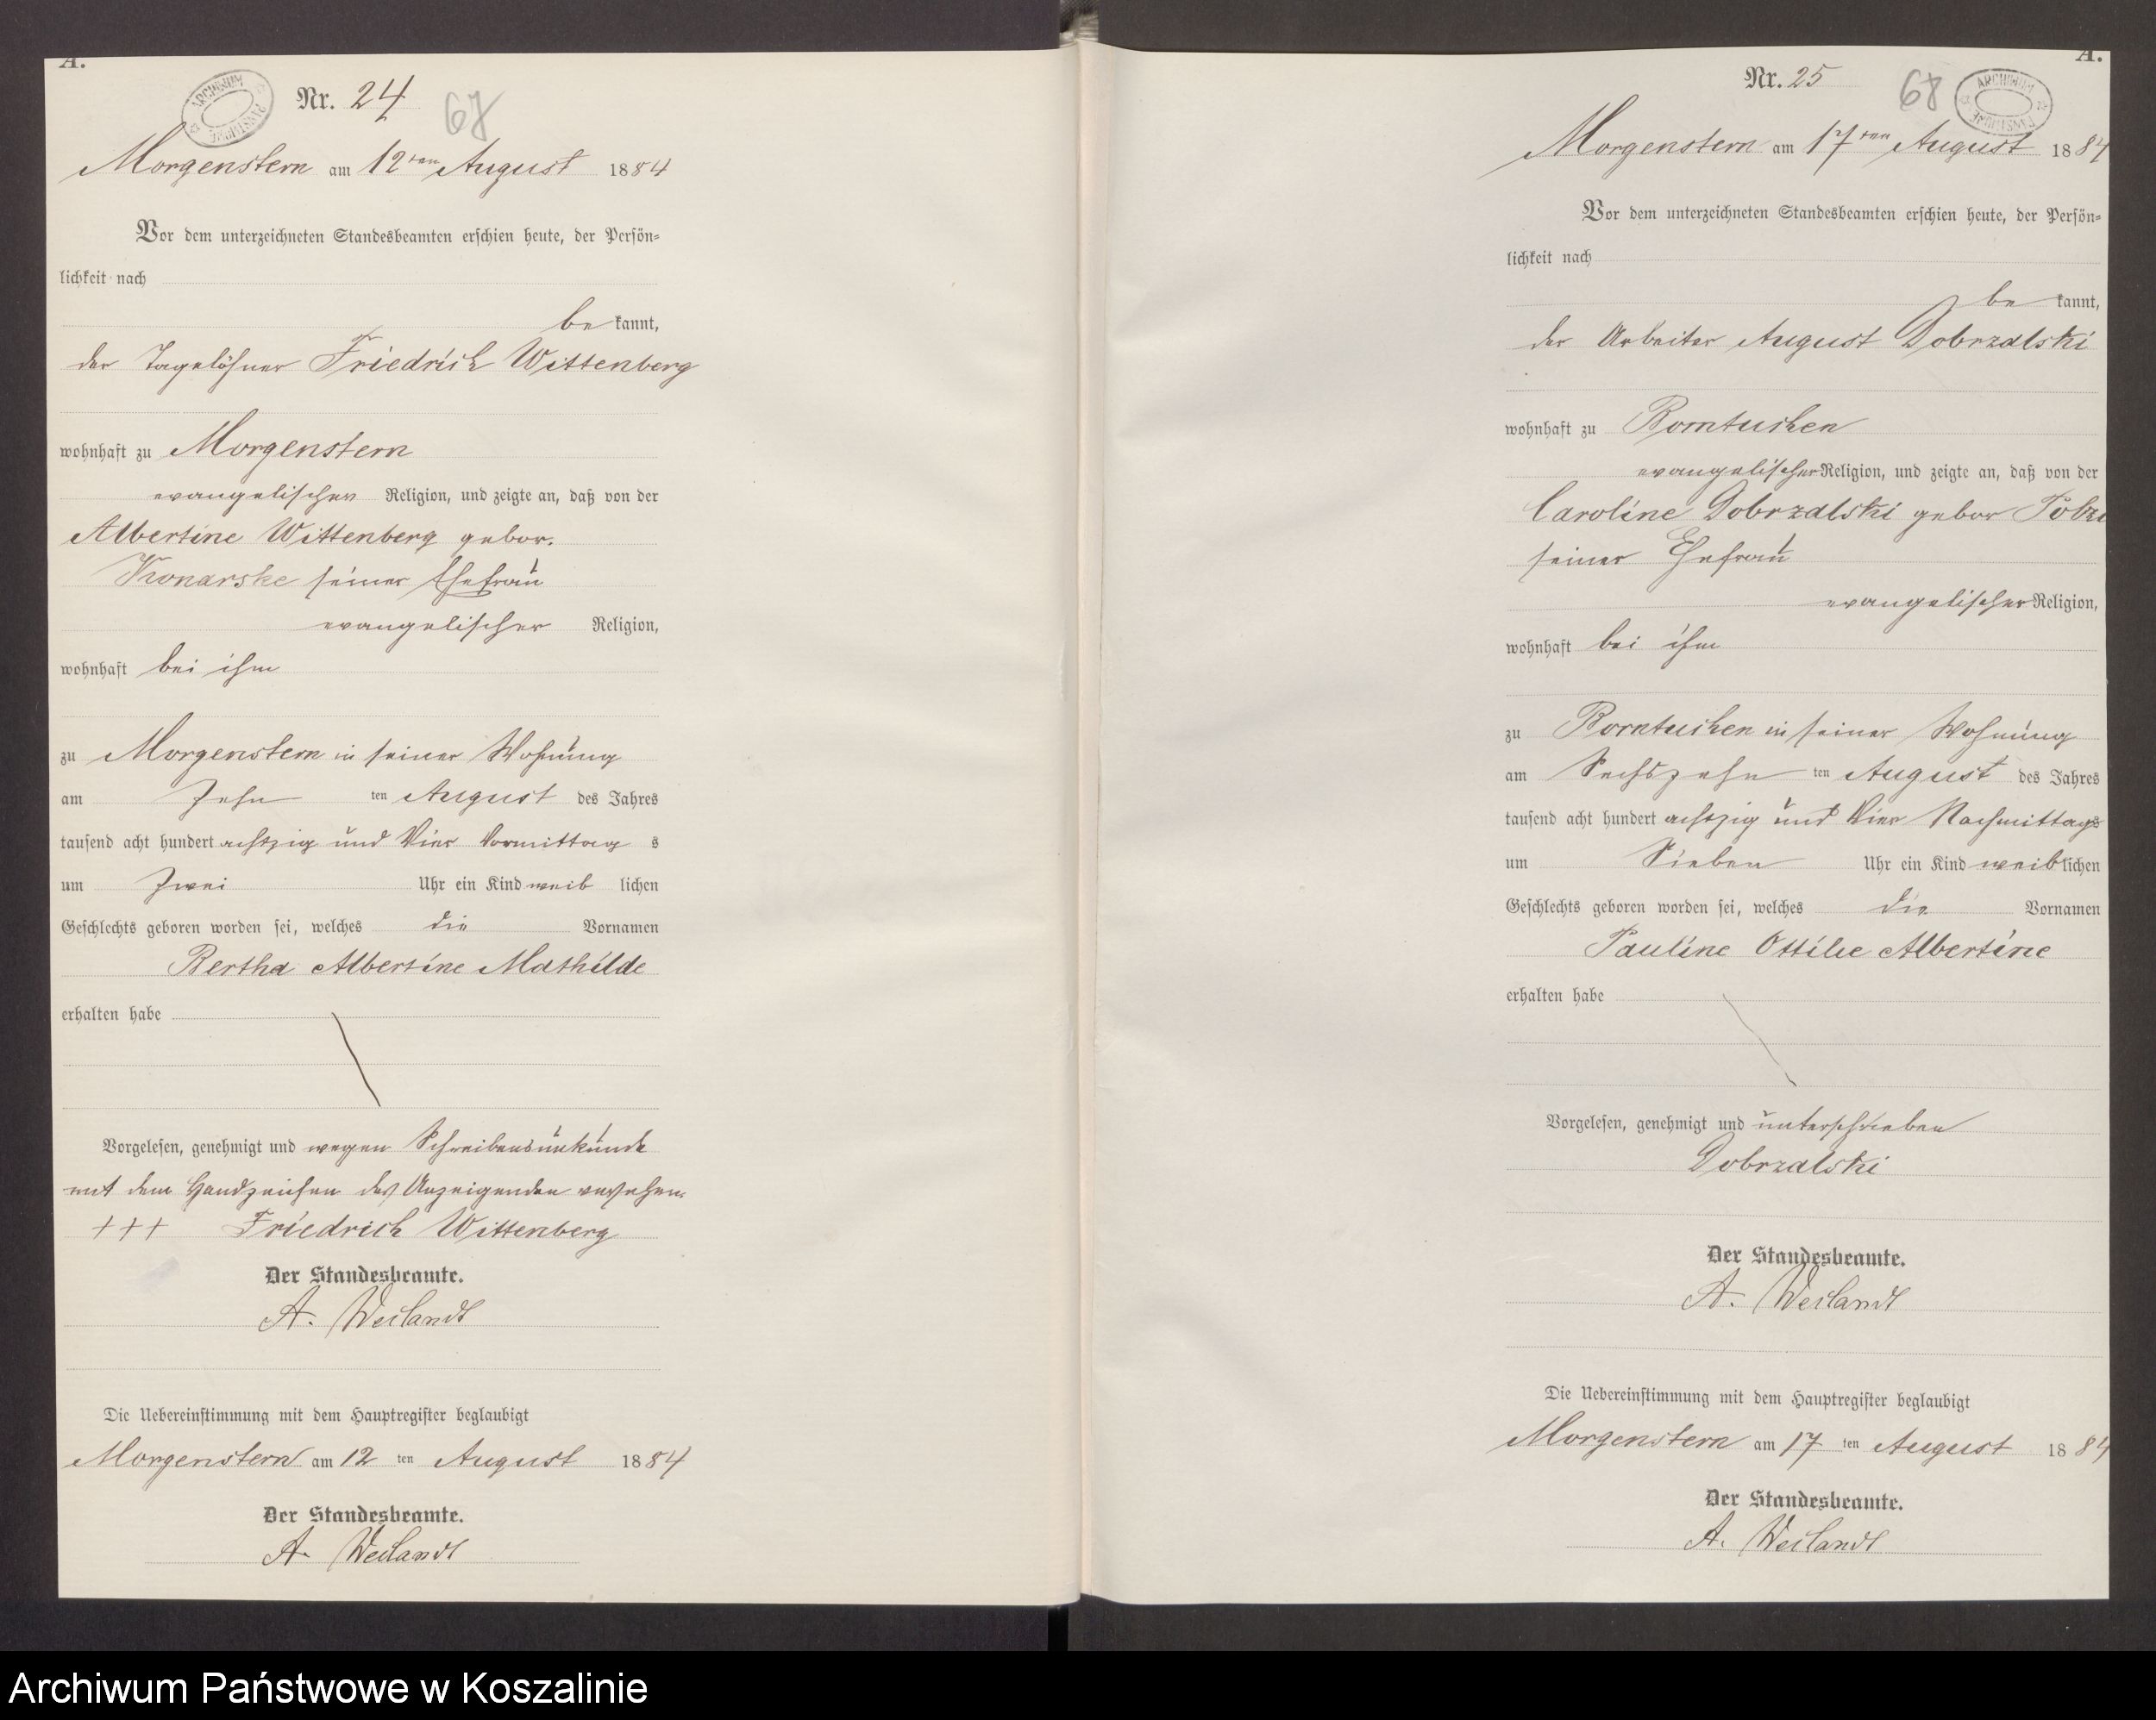 A.
ARCHIWUM PAŃSTWOWE
Nr. 24
67
Morgenstern am 12ten August 1884
Vor dem unterzeichneten Standesbeamten erschien heute, der Persön=
lichkeit nach
be kannt,
der Tagelöhner Friedrich Wittenberg
wohnhaft zu Morgenstern
evangelischer Religion, und zeigte an, daß von der
Albertine Wittenberg gebor.
Konarske seiner Ehefrau
evangelischer Religion,
wohnhaft bei ihm
zu Morgenstern in seiner Wohnung
am Zehn ten August des Jahres
tausend acht hundert achtzig und Vier Vormittag s
um Zwei Uhr ein Kind weib lichen
Geschlechts geboren worden sei, welches die Vornamen
Bertha Albertine Mathilde
erhalten habe
Vorgelesen, genehmigt und wegen Schreibensunkunde
mit dem Handzeichen des Anzeigenden versehen.
+++ Friedrich Wittenberg
Der Standesbeamte.
A. Weilandt
Die Uebereinstimmung mit dem Hauptregister beglaubigt
Morgenstern am 12 ten August 1884
Der Standesbeamte.
A. Weilandt
A.
Nr. 25
68
ARCHIWUM PAŃSTWOWE
Morgenstern am 17ten August 1884
Vor dem unterzeichneten Standesbeamten erschien heute, der Persön=
lichkeit nach
be kannt,
der Arbeiter August Dobrzalski
wohnhaft zu Borntuchen
evangelischer Religion, und zeigte an, daß von der
Caroline Dobrzalski gebor
seiner Ehefrau
evangelischer Religion,
wohnhaft bei ihm
zu Borntuchen in seiner Wohnung
am Sechszehn ten August des Jahres
tausend acht hundert achtzig und Vier Nachmittags
um Sieben Uhr ein Kind weiblichen
Geschlechts geboren worden sei, welches die Vornamen
Pauline Ottilie Albertine
erhalten habe
Vorgelesen, genehmigt und unterschrieben
Dobrzalski
Der Standesbeamte.
A. Weilandt
Die Uebereinstimmung mit dem Hauptregister beglaubigt
Morgenstern am 17 ten August 1884
Der Standesbeamte.
A. Weilandt
Archiwum Państwowe w Koszalinie